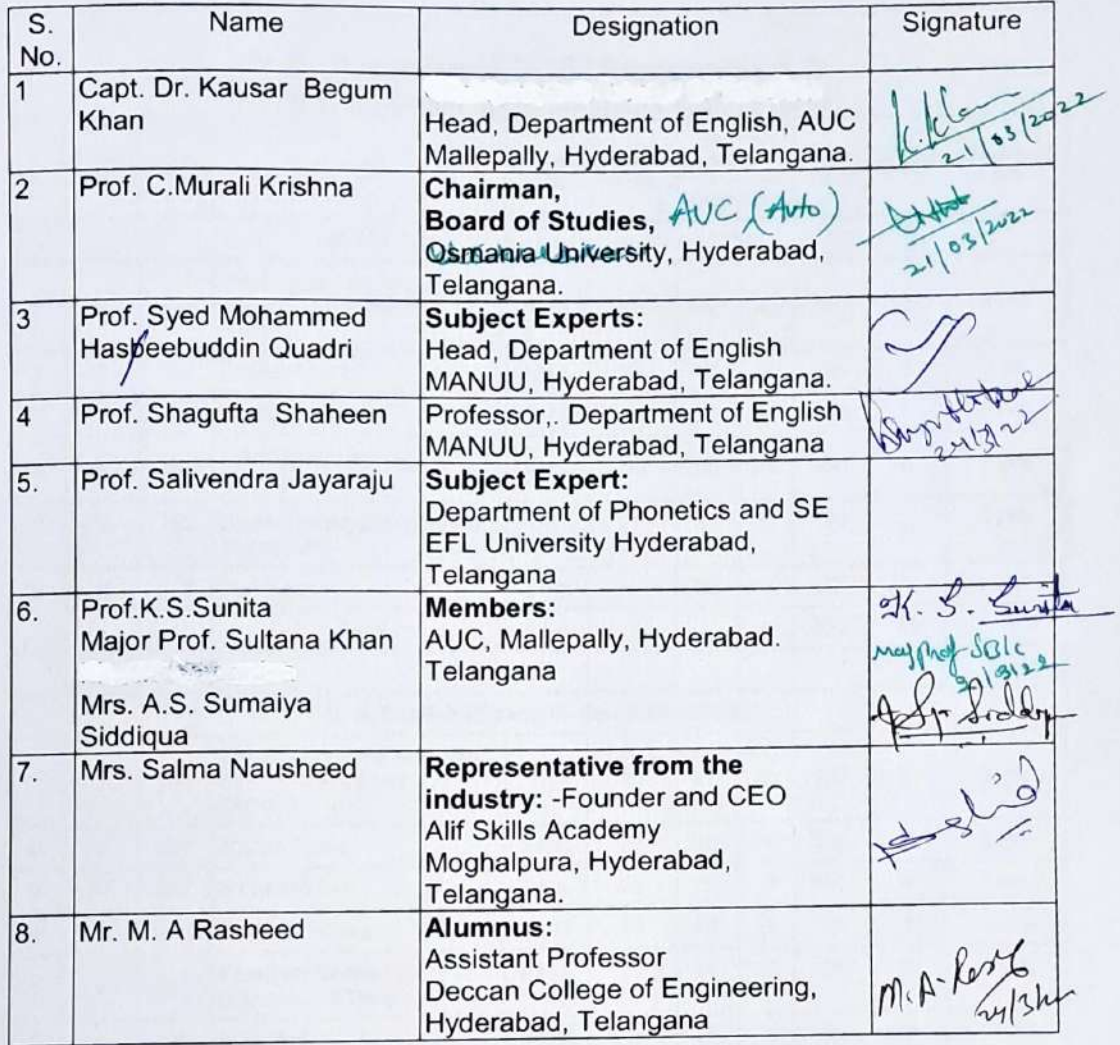 S. No. Name Designation Signature
1 Capt. Dr. Kausar Begum Khan
Head, Department of English, AUC
Mallepally, Hyderabad, Telangana.
21/03/2022
2 Prof. C.Murali Krishna
Chairman,
Board of Studies, AUC (Auto)
Osmania University, Hyderabad,
Telangana.
21/03/2022
3 Prof. Syed Mohammed
Hasbeebuddin Quadri
Subject Experts:
Head, Department of English
MANUU, Hyderabad, Telangana.
4 Prof. Shagufta Shaheen
Professor,. Department of English
MANUU, Hyderabad, Telangana
5. Prof. Salivendra Jayaraju
Subject Expert:
Department of Phonetics and SE
EFL University Hyderabad,
Telangana
6. Prof.K.S.Sunita
Major Prof. Sultana Khan
Mrs. A.S. Sumaiya
Siddiqua
Members:
AUC, Mallepally, Hyderabad.
Telangana
K. S. Sunita
7. Mrs. Salma Nausheed
Representative from the
industry: -Founder and CEO
Alif Skills Academy
Moghalpura, Hyderabad,
Telangana.
8. Mr. M. A Rasheed
Alumnus:
Assistant Professor
Deccan College of Engineering,
Hyderabad, Telangana